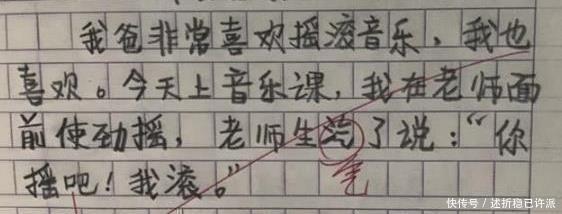 我爸非常喜欢摇滚音乐，我也
喜欢。今天上音乐课，我在老师面
前使劲摇，老师生汽了说：“你
气
摇吧！我滚。”
快传号 / 述折稳已许派